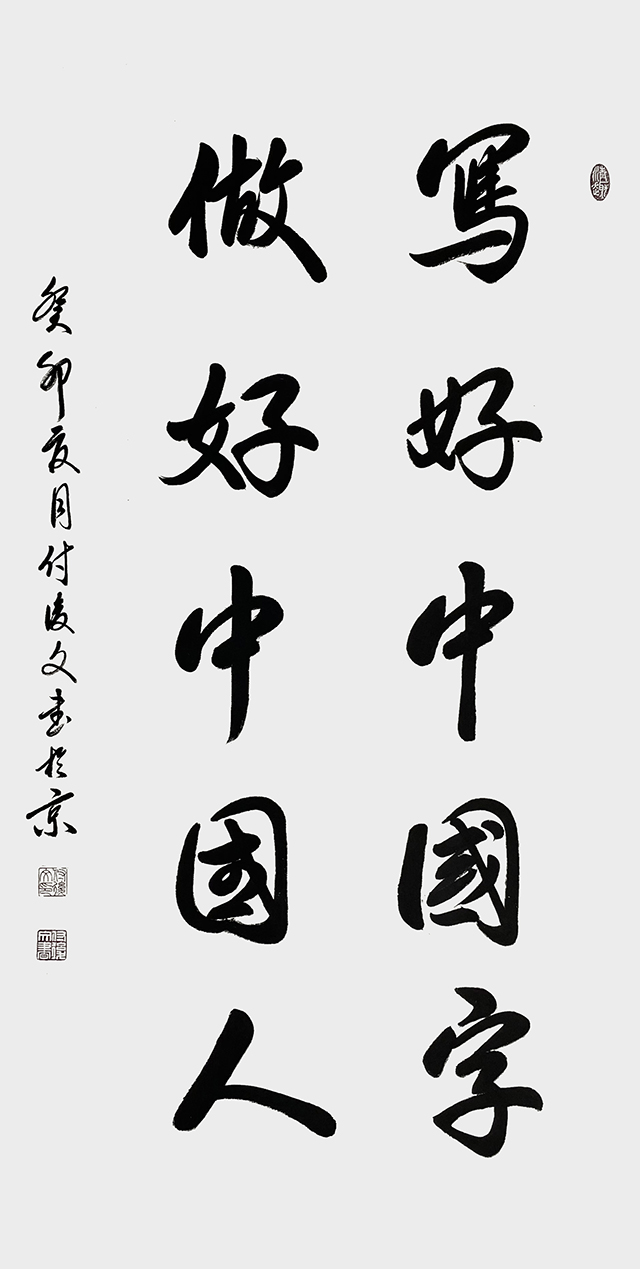 寫好中國字
做好中國人
癸卯夏月付文書於京